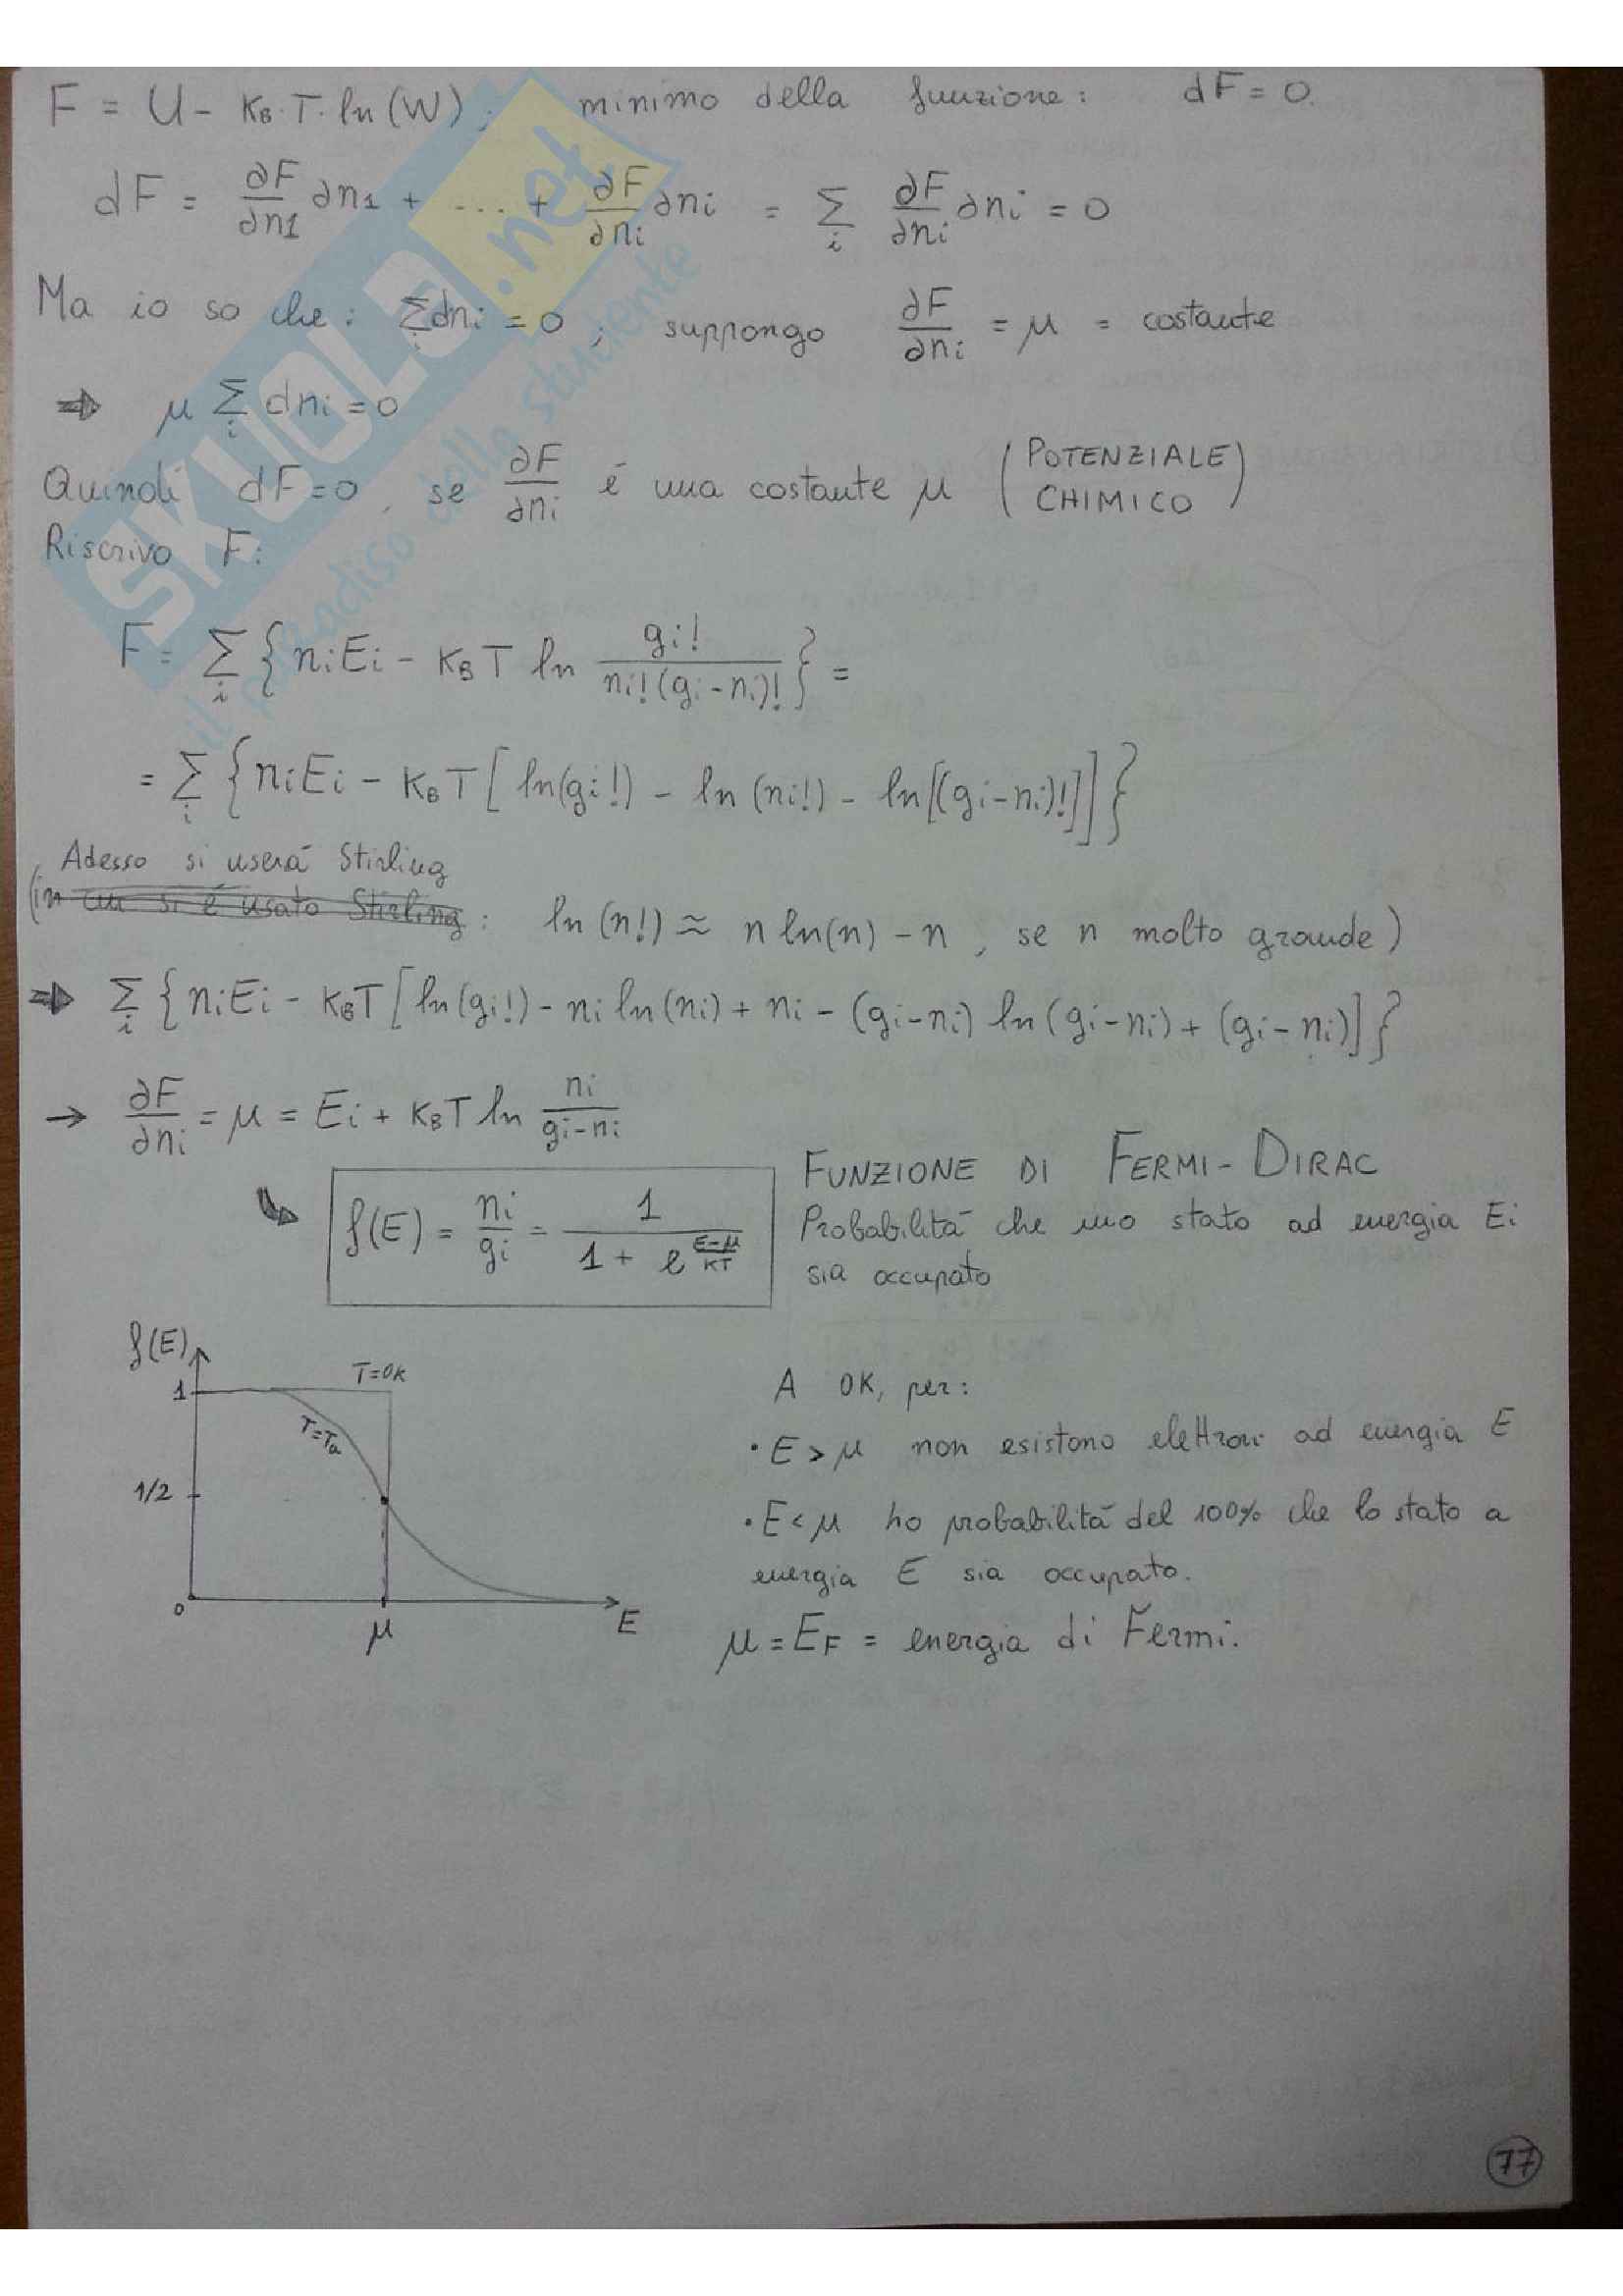 F = U - KB·T·ln(W); minimo della funzione: dF = 0.
dF = ∂F/∂n1 ∂n1 + .... + ∂F/∂ni ∂ni = Σi ∂F/∂ni ∂ni = 0
Ma io so che: Σi dni = 0 ; suppongo ∂F/∂ni = μ = costante
⇒ μ Σi dni = 0
Quindi dF = 0, se ∂F/∂ni é una costante μ (POTENZIALE CHIMICO)
Riscrivo F:
F = Σi { niEi - KBT ln gi!/(ni!(gi-ni)!) } =
= Σi { niEi - KBT [ ln(gi!) - ln(ni!) - ln[(gi-ni)!]] }
Adesso si userá Stirling
(in cui si é usato Stirling: ln(n!) ≈ n ln(n) - n , se n molto grande)
⇒ Σi { niEi - KBT [ ln(gi!) - ni ln(ni) + ni - (gi-ni) ln(gi-ni) + (gi-ni)] }
→ ∂F/∂ni = μ = Ei + KBT ln ni/(gi-ni)
f(E) = ni/gi = 1/(1 + e^((E-μ)/KT))
FUNZIONE DI FERMI-DIRAC
Probabilitá che uno stato ad energia Ei
sia occupato
f(E)
T=0K
1
T=Ta
1/2
0
μ
E
A 0K, per:
· E > μ non esistono elettroni ad energia E
· E < μ ho probabilitá del 100% che lo stato a
energia E sia occupato.
μ = EF = energia di Fermi.
77
SKUOLA.net
il paradiso dello studente